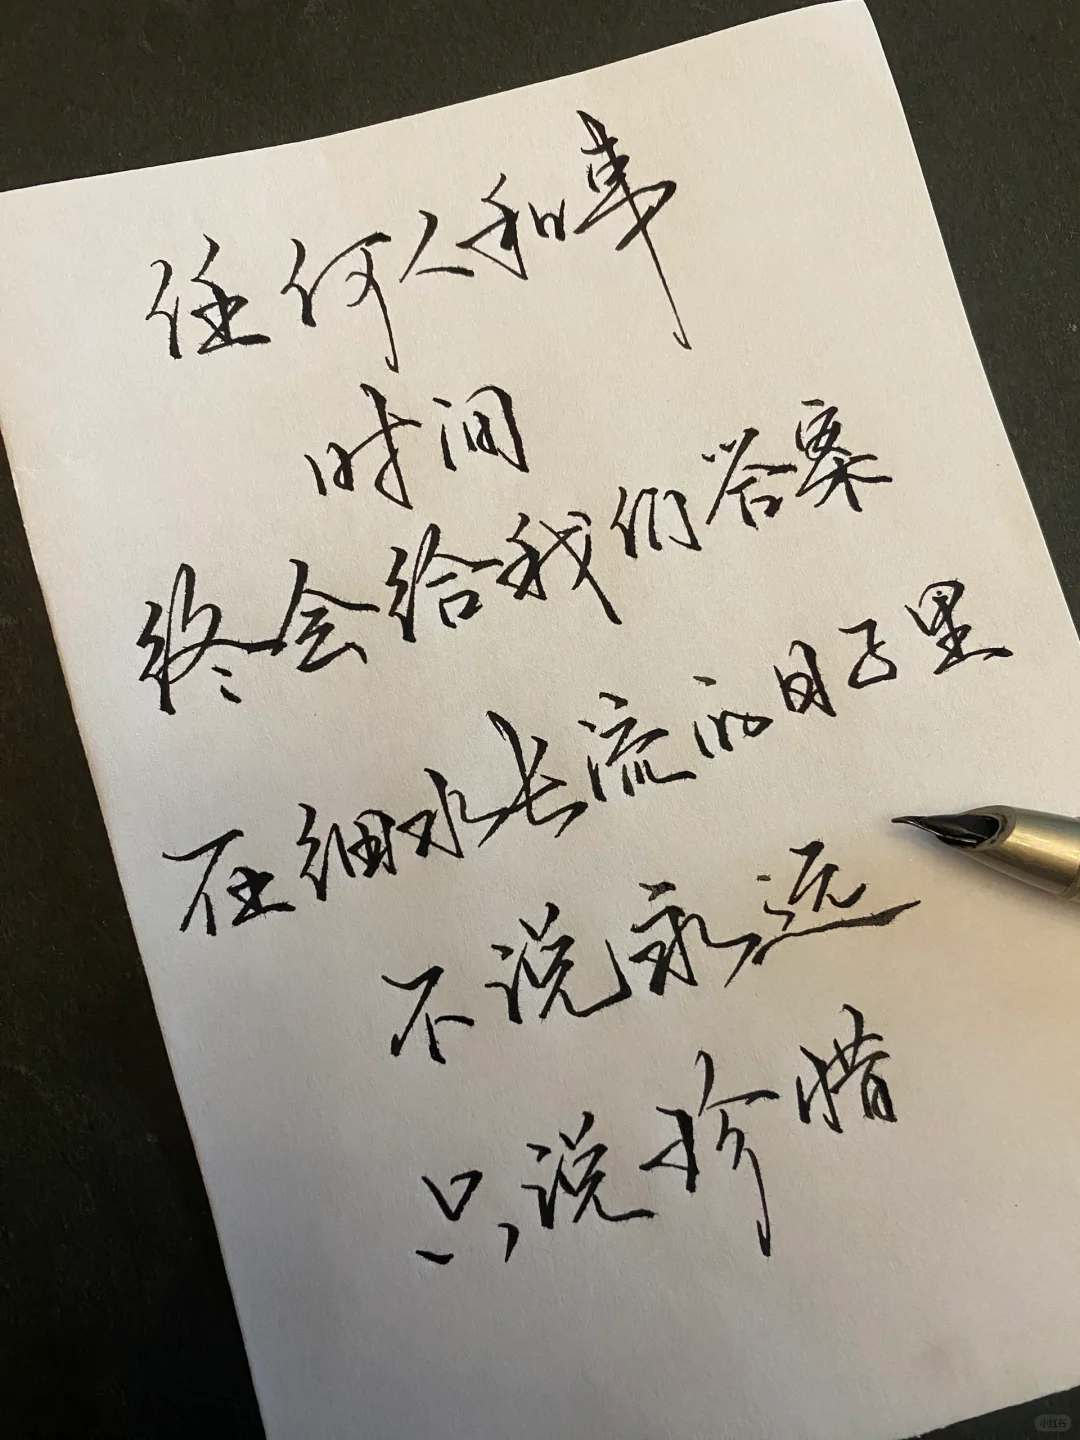 任何人和事
时间
终会给我们答案
在细水长流的日子里
不说永远
只说珍惜
小红书